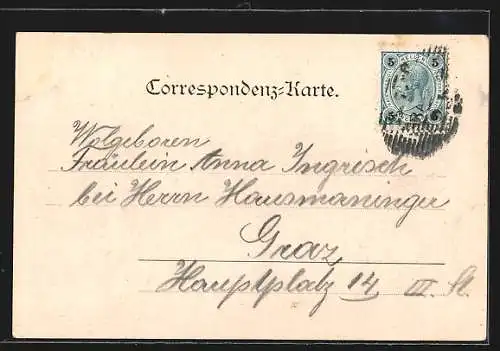 5 5
Correspondenz-Karte.
Wolgeboren
Fräulein Anna Ingrisch
bei Herrn Hausmaninger
Graz
Hauptplatz 14 III. St.